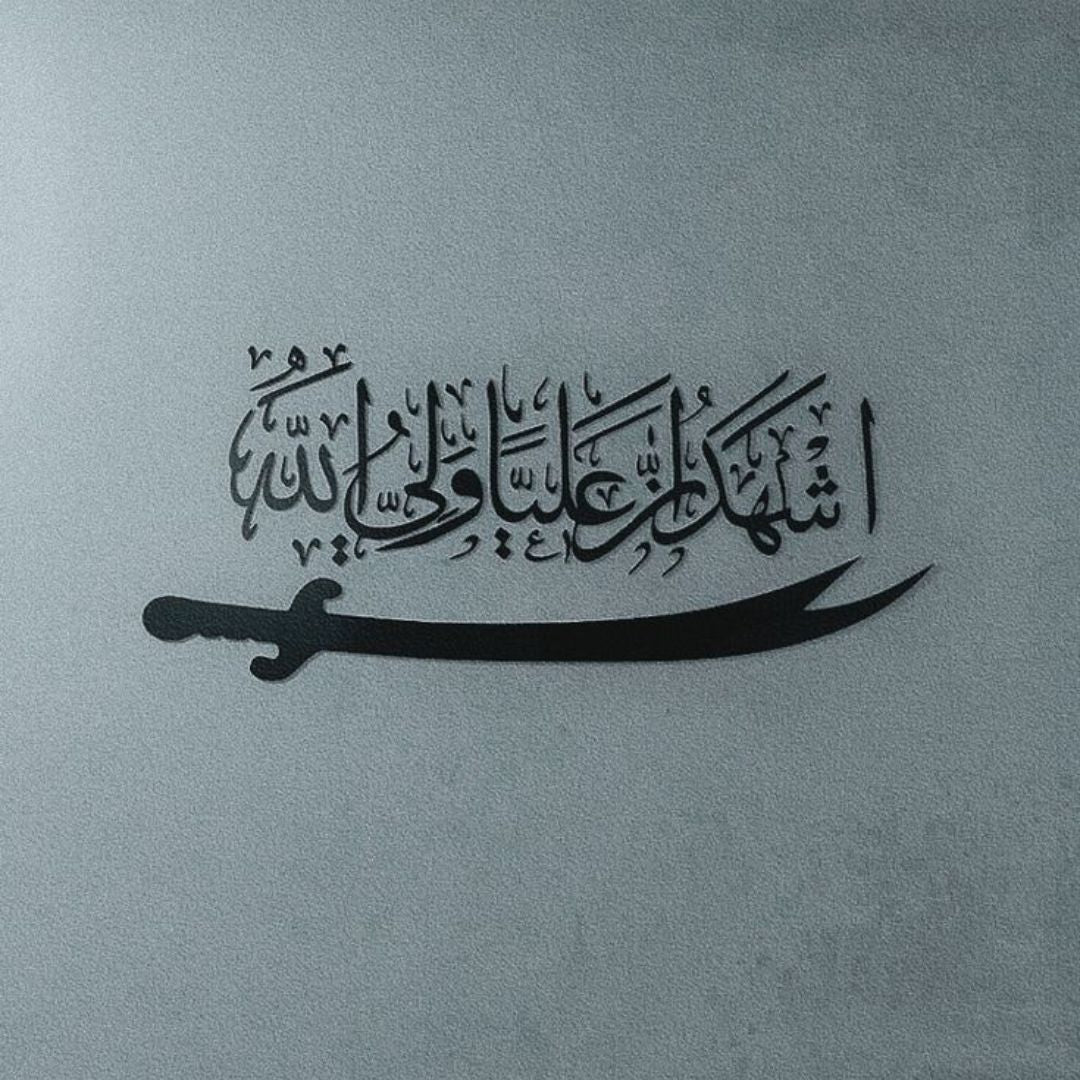 اشهد ان علیًا ولي الله